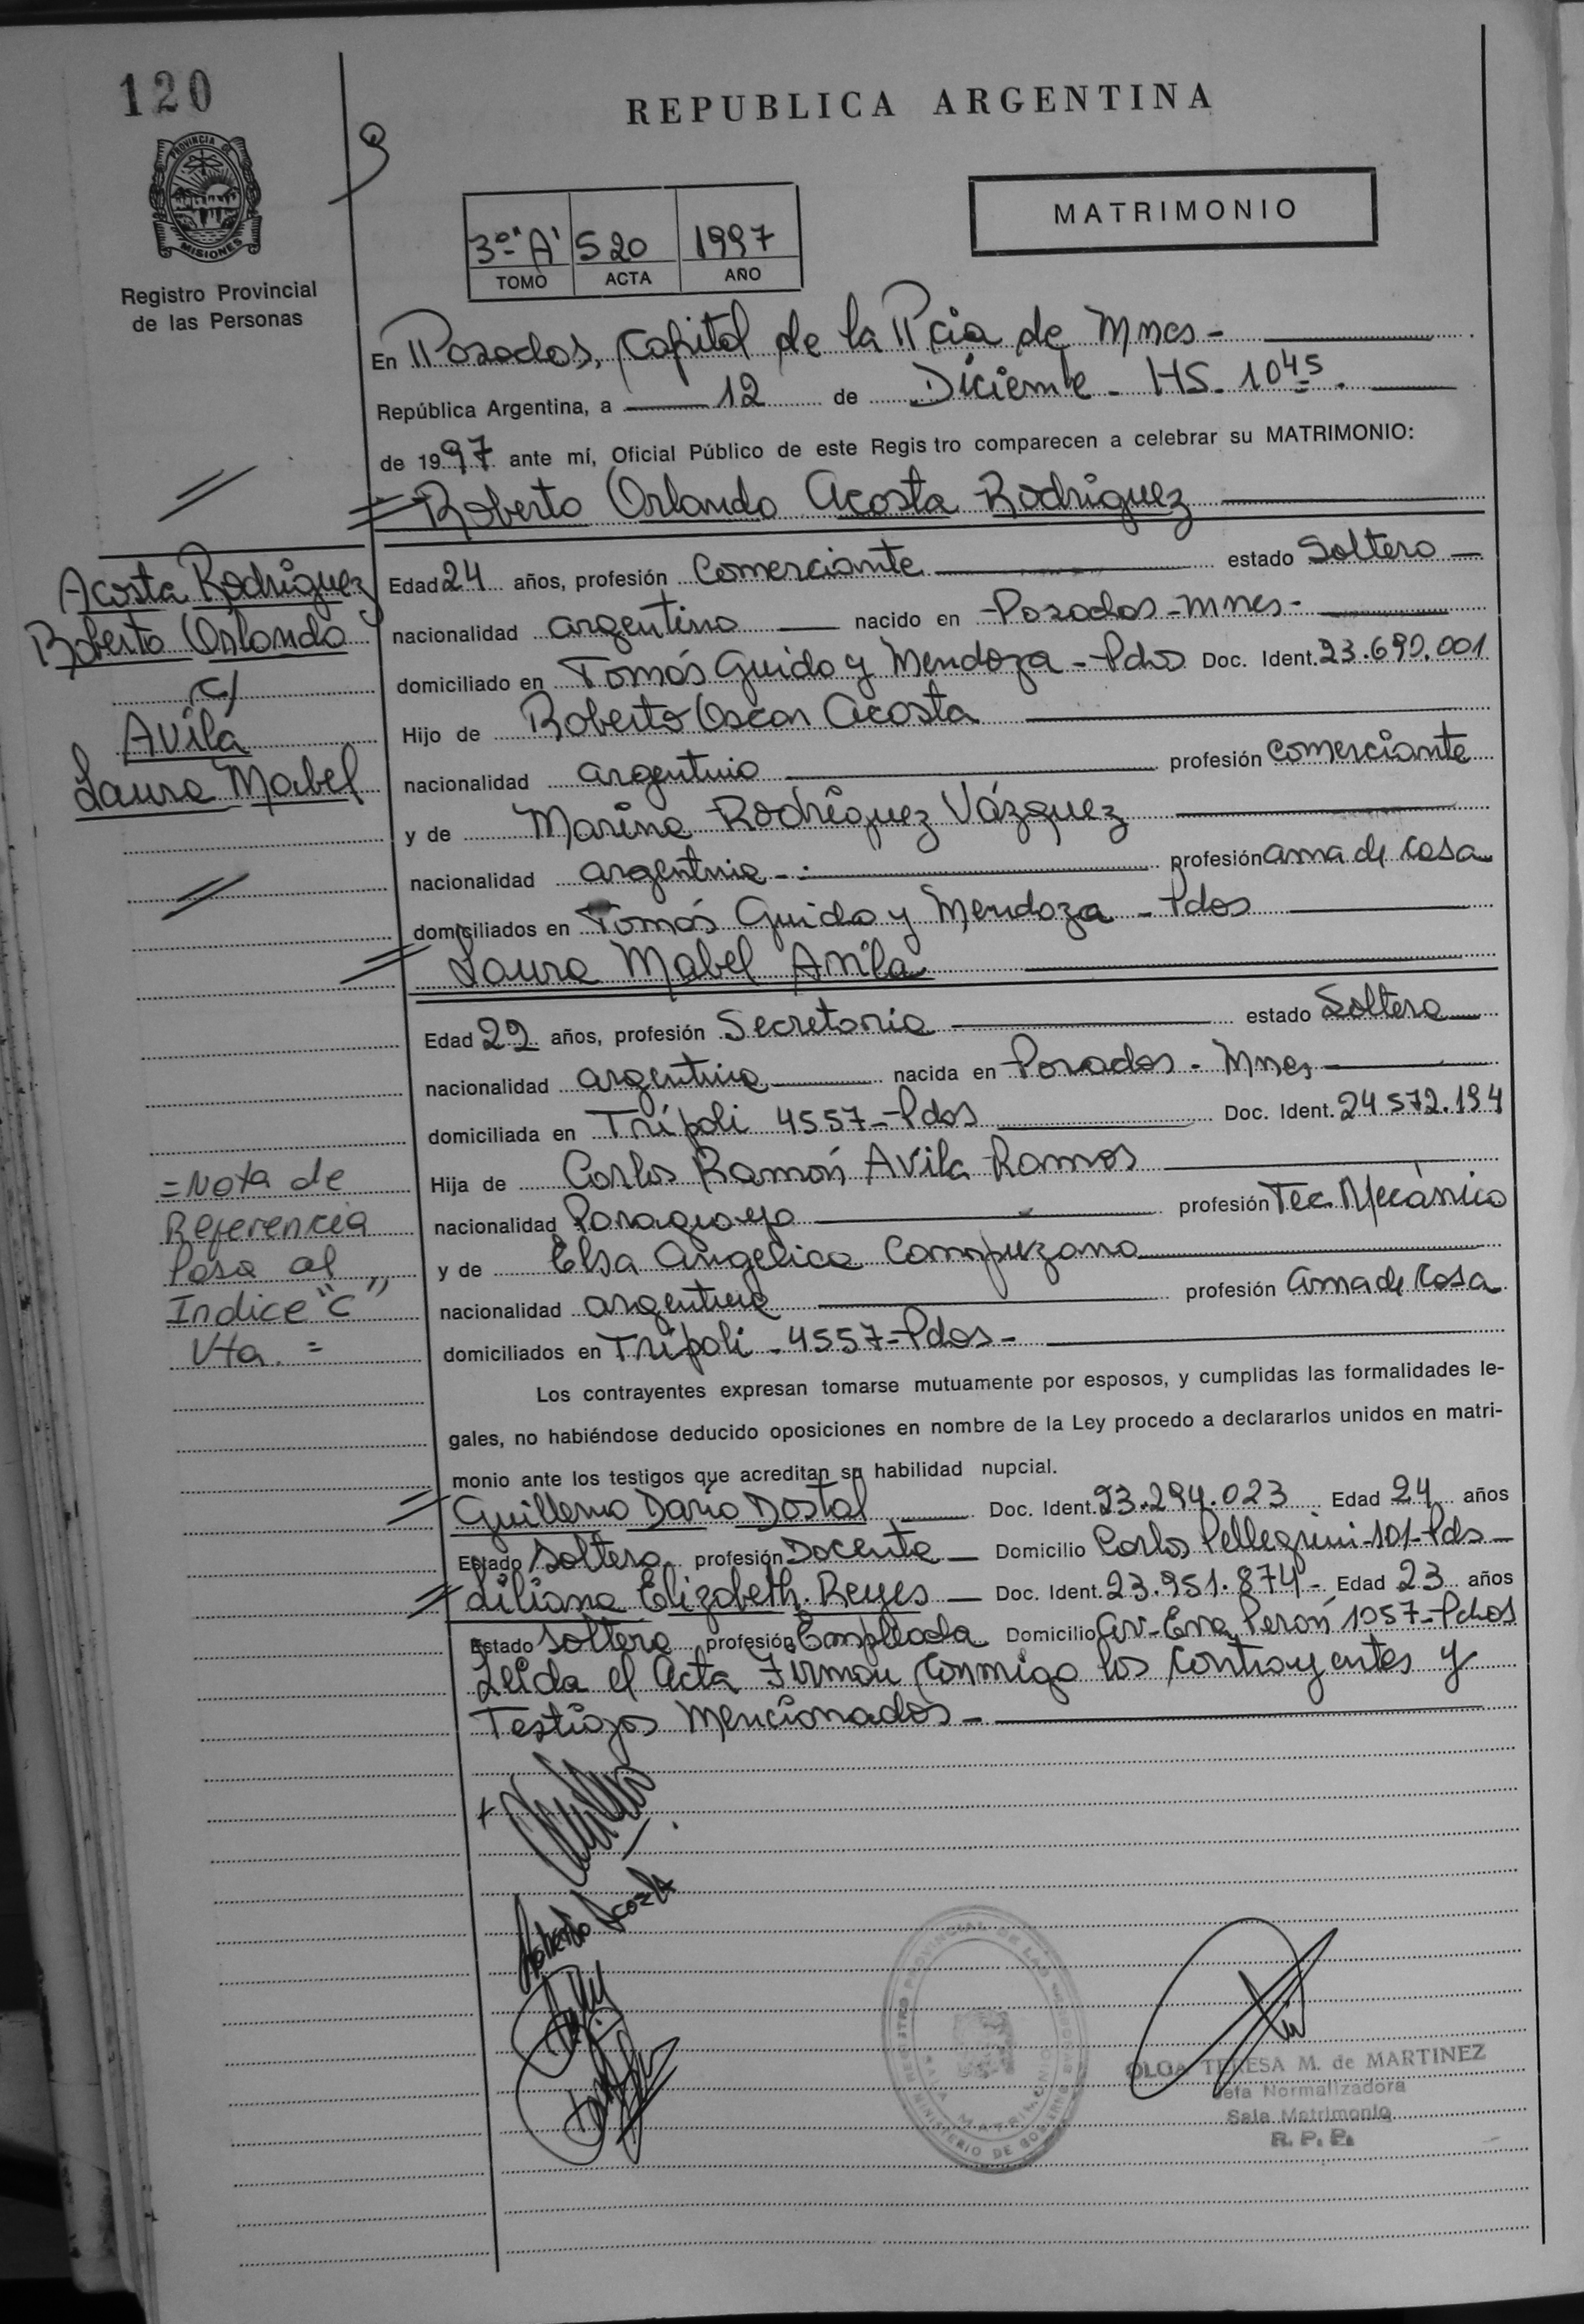 120
REPUBLICA ARGENTINA
PROVINCIA DE
MISIONES
Registro Provincial
de las Personas
MATRIMONIO
3º "A" 520 1997
TOMO ACTA AÑO
En Posadas, Capital de la Pcia de Mnes -
República Argentina, a 12 de Diciembre - HS. 10 45.
de 1997 ante mí, Oficial Público de este Regis tro comparecen a celebrar su MATRIMONIO:
Roberto Orlando Acosta Rodríguez
Acosta Rodríguez
Roberto Orlando
c/
Avila
Laura Mabel
Edad 24 años, profesión Comerciante estado Soltero
nacionalidad argentino nacido en Posadas - Mnes -
domiciliado en Tomás Guido y Mendoza - Pdas Doc. Ident. 23.690.001
Hijo de Roberto Oscar Acosta
nacionalidad argentino profesión Comerciante
y de Marina Rodríguez Vázquez
nacionalidad argentina - profesión ama de casa
domiciliados en Tomás Guido y Mendoza - Pdas
Laura Mabel Avila
Edad 22 años, profesión Secretaria estado Soltera
nacionalidad argentina nacida en Posadas - Mnes
domiciliada en Trípoli 4557 - Pdas Doc. Ident. 24.572.194
Hija de Carlos Ramón Avila Ramos
nacionalidad Paraguayo profesión Tec. Mecánico
y de Elsa Angelica Campuzano
nacionalidad argentina profesión ama de Casa
domiciliados en Trípoli - 4557 - Pdas -
= Nota de
Referencia
Pasa al
Indice "C"
Vta. =
Los contrayentes expresan tomarse mutuamente por esposos, y cumplidas las formalidades le-
gales, no habiéndose deducido oposiciones en nombre de la Ley procedo a declararlos unidos en matri-
monio ante los testigos que acreditan su habilidad nupcial.
Guillermo Darío Dostal Doc. Ident. 23.294.023 Edad 24 años
Estado Soltero profesión Docente Domicilio Carlos Pellegrini - 101 - Pdas
Liliana Elizabeth Reyes Doc. Ident. 23.951.874 - Edad 23 años
Estado Soltera profesión Empleada Domicilio Av - Eva Perón 1057 - Pdas
Leída el Acta Firman Conmigo los Contrayentes y
Testigos Mencionados -
Roberto Acosta
OLGA TERESA M. de MARTINEZ
Jefa Normalizadora
Sala Matrimonio
R. P. P.